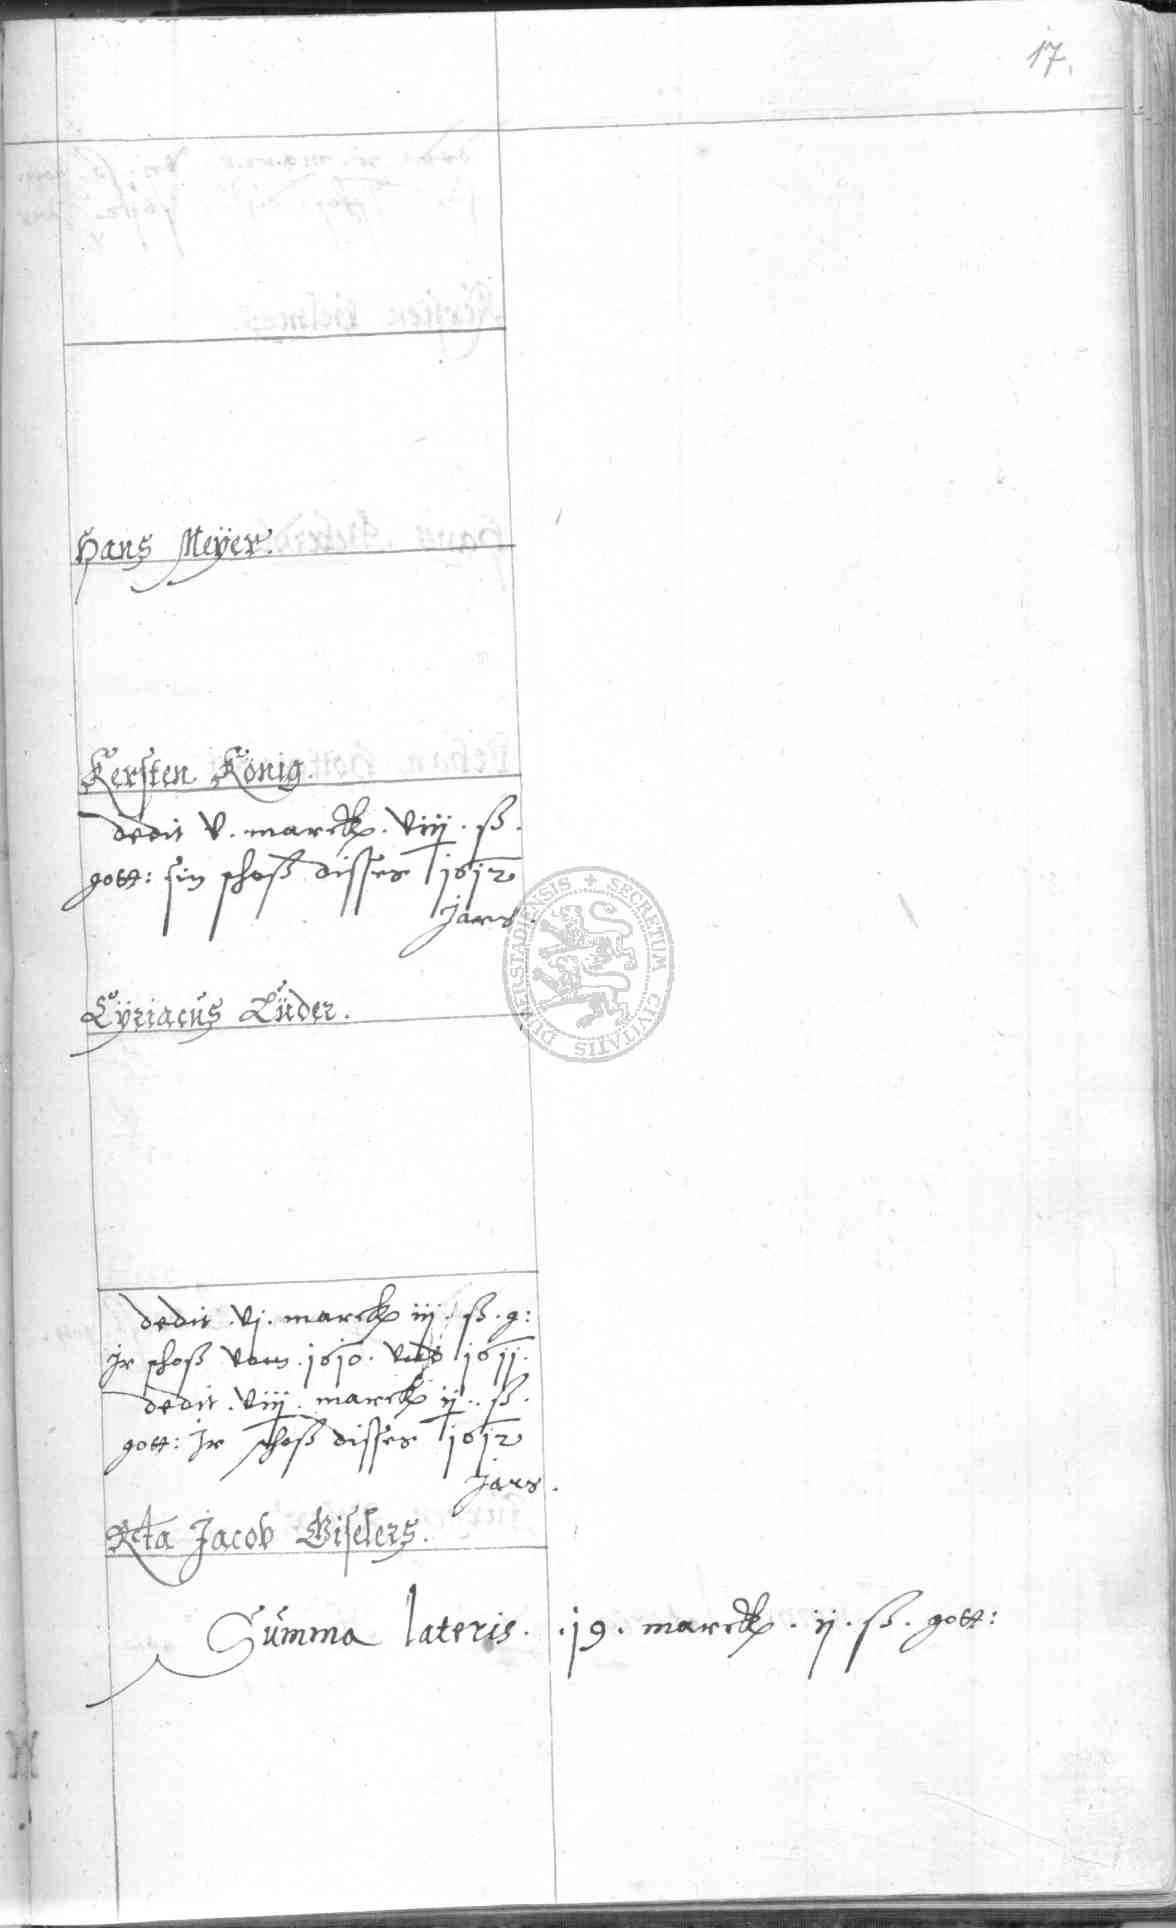 17.
Hans Meÿer.
Kersten König.
dedit v. marck. viiij. ß.
gott: sin schoß disses 1612
Jars.
Cÿriacus Lüder.
SECRETUM CIVITATIS DUDERSTADIENSIS
dedit .vj. marck iij. ß. g:
Jr schoß vom .1610. vnd 1611.
dedit .viij. marck ij. ß.
gott: Jr schoß disses 1612
Jars.
Rcta Jacob Giselers.
Summa lateris. .19. marck. ij. ß. gott: